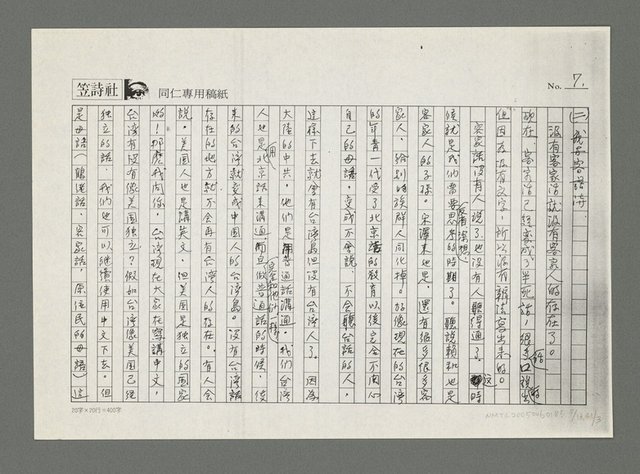 笠詩社 同仁專用稿紙
No. 7.
(二)我承客語詩
沒有客家話就沒有客家人的存在了。
現在,客家話已經變成了半死話,很多口說出
但因為沒有文字,所以沒有辦法寫出來的。
客家話沒有人說了也沒有人聽得通了。這時
候就是我們需要思考的時期了。聽說賴和也是
客家人的子孫。宋澤來也是,還有很多很多客
家人,給別的族群人同化掉。好像現在的台灣
的年青一代受了北京話的教育以後完全不關心
自己的母語,變成不會說,不會聽台語的人。
這樣下去就會有台灣島但沒有台灣人了。因為
大陸的中共,他們是用普通話溝通。我們台灣
人也是用北京話來溝通而且做普通話的時候,後
來的台灣就變成中國人的台灣島。沒有台灣話
存在的地方就不會再有台灣人的存在。有人會
說,美國人也是講英文,但美國是獨立的國家
喲!那麼我問你,台灣現在大家在寫講中文,
台灣有沒有像美國獨立?假如台灣像美國已經
獨立的話,我們也可以繼續使用中文下去。但
是母語(鶴佬話、客家話、原住民的母語)這
20字×20行=400字